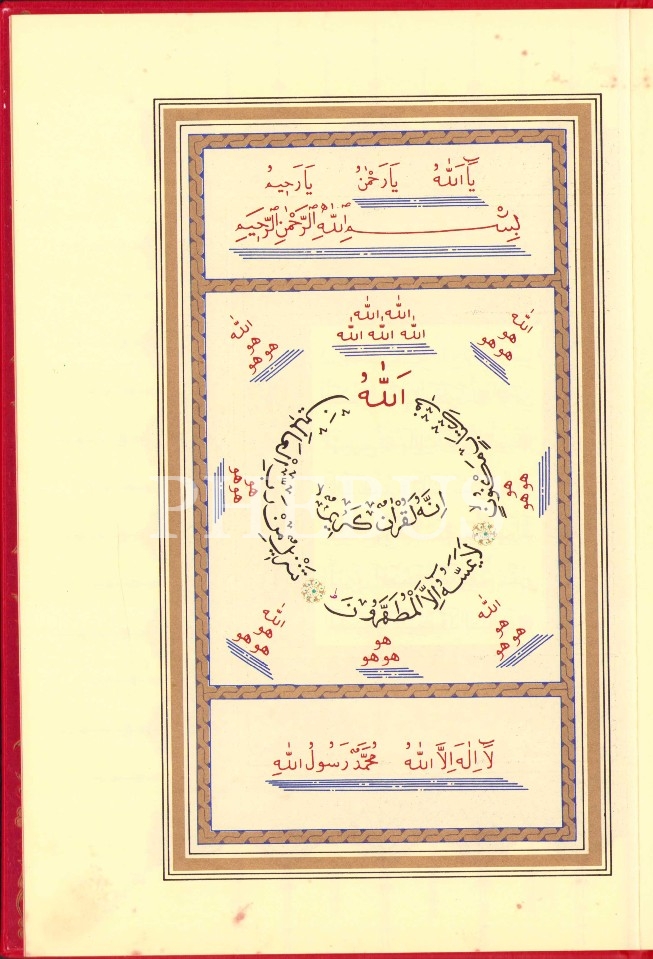 يَا اَللّٰهُ يَا رَحْمٰنُ يَا رَحِيمُ
بِسْمِ اللّٰهِ الرَّحْمٰنِ الرَّحِيمِ
اَللّٰهُ اَللّٰهُ
اَللّٰهُ اَللّٰهُ اَللّٰهُ
اَللّٰهُ
هو
هو هو
اَللّٰهُ
هو
هو هو
اَللّٰهُ
اِنَّهُ لَقُرْاٰنٌ كَرِيمٌ
لَا يَمَسُّهُ اِلَّا الْمُطَهَّرُونَ
تَنْزِيلٌ مِنْ رَبِّ الْعَالَمِينَ
هو
هو هو
هو
هو هو
PHEBUS
اَللّٰهُ
هو
هو هو
اَللّٰهُ
هو
هو هو
هو
هو هو
لَا اِلٰهَ اِلَّا اللّٰهُ مُحَمَّدٌ رَسُولُ اللّٰهِ